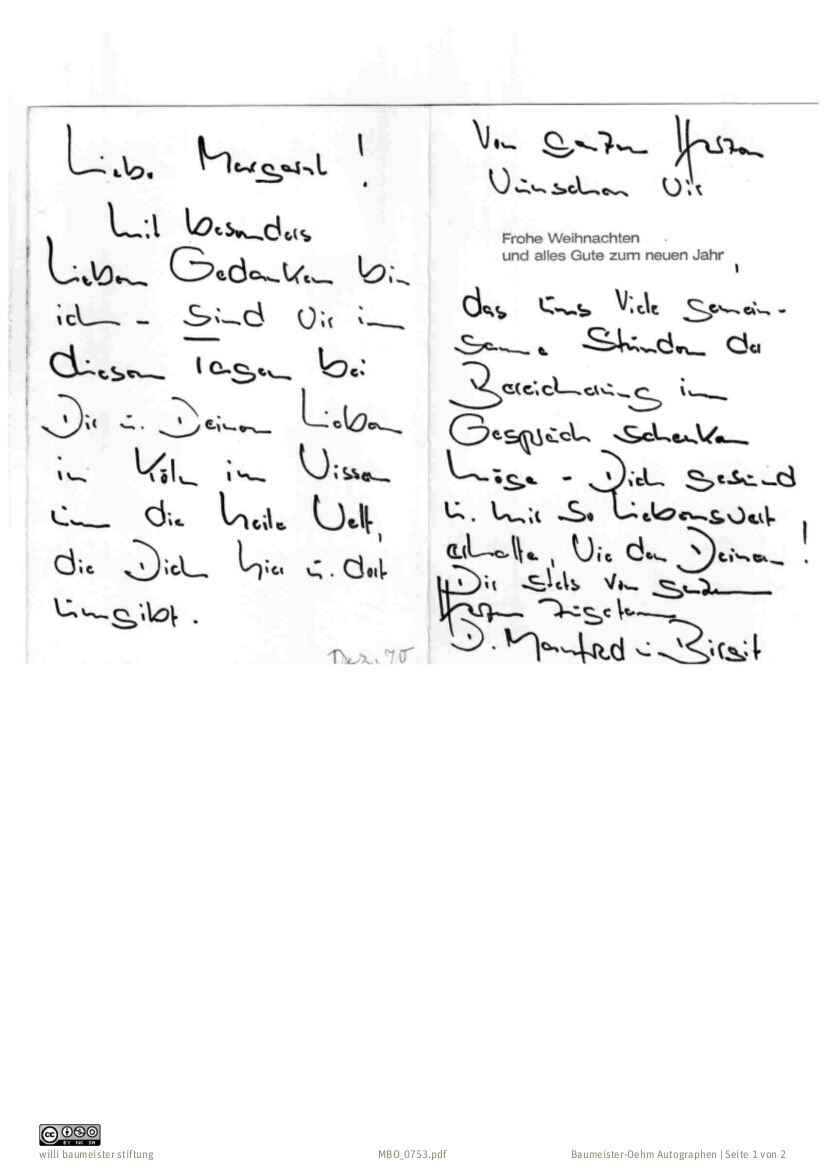 Liebe Margaret!
Mit besonders
lieben Gedanken bin
ich - sind wir in
diesen Tagen bei
Dir u. Deinen Lieben
in Köln im Wissen
um die heile Welt,
die Dich hier u. dort
umgibt.
Dez. 90
Von ganzem Herzen
wünschen wir
Frohe Weihnachten
und alles Gute zum neuen Jahr,
das uns viele gemein-
same Stunden der
Bereicherung im
Gespräch schenken
möge - Dich gesund
u. mir so liebenswert
erhalte, wie den Deinen!
Dir stets von ganzem
Herzen zugetan
D. Manfred u. Birgit
BY NC SA
willi baumeister stiftung
MBO_0753.pdf
Baumeister-Oehm Autographen | Seite 1 von 2